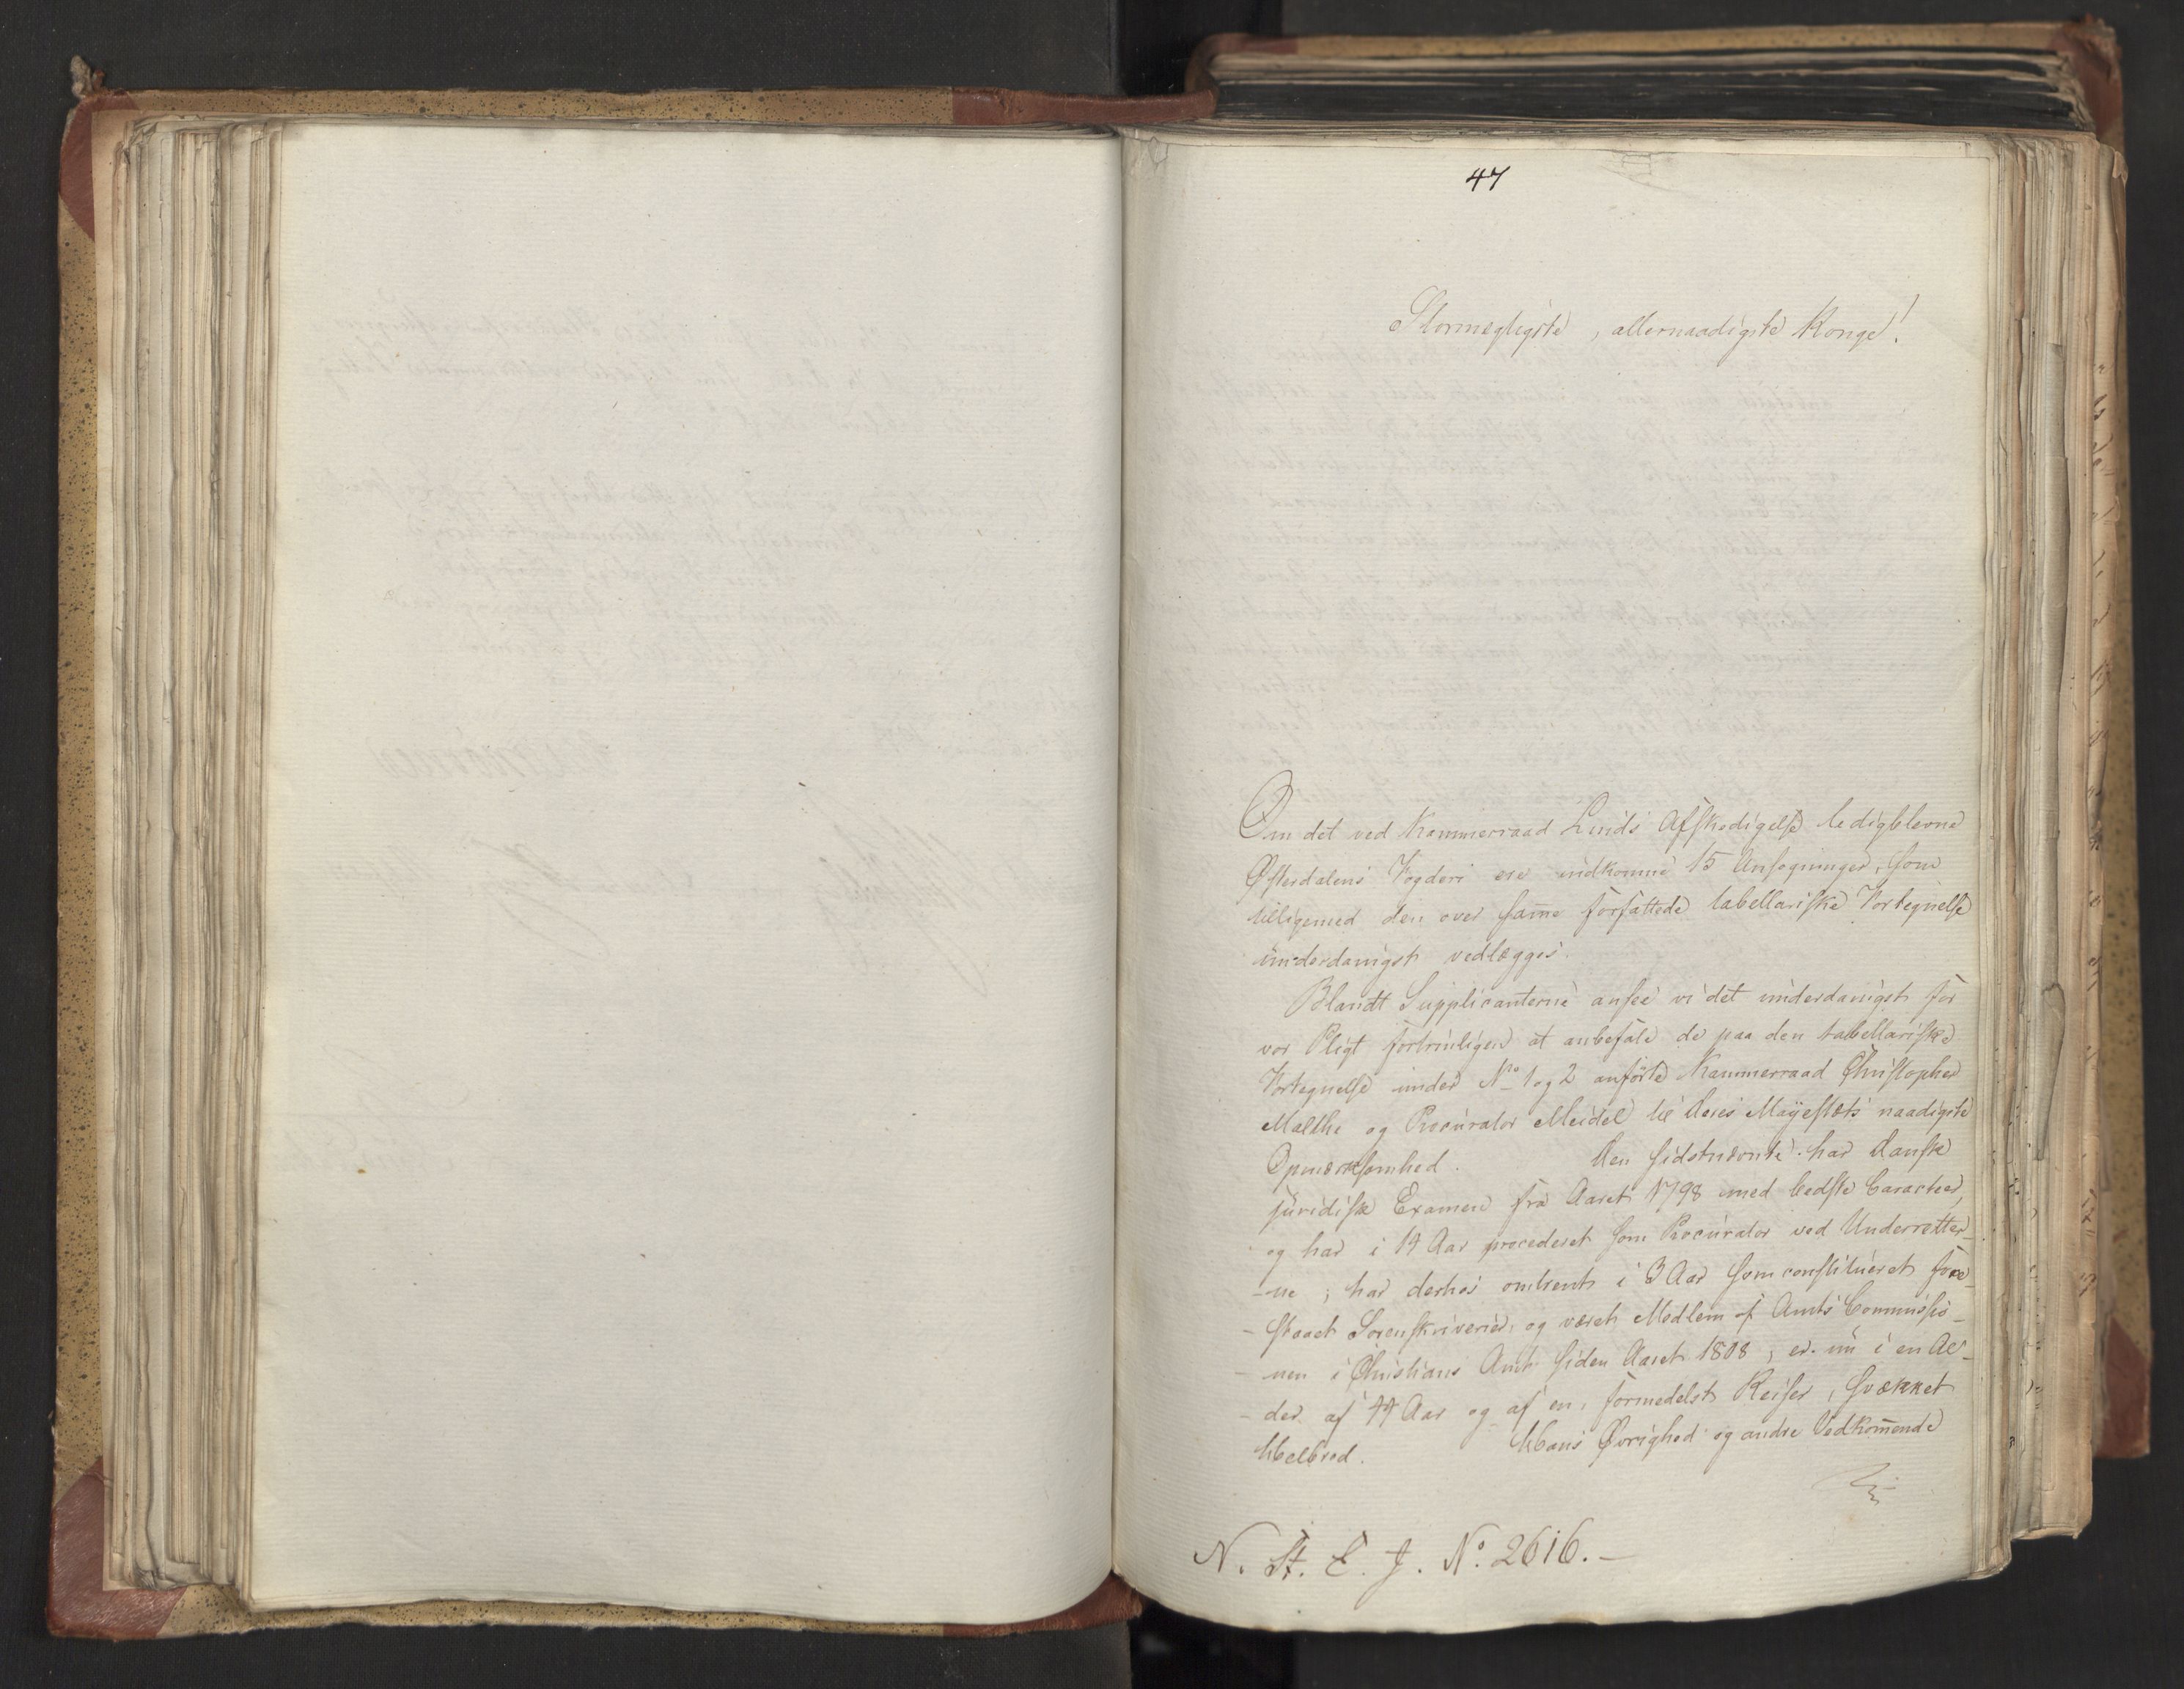 47
Stormegtigste, allernaadigste Konge!
Om det ved Kammerraad Lunds Afskedigelse ledigblevne
Østerdalens Fogderi ere indkomne 15 Ansøgninger, som
tilligemed den over sam̄e forfattede tabellariske Fortegnelse
underdanigst vedlægges.
Blandt Supplicanterne ansee vi det underdanigst for
vor Pligt fortrinligen at anbefale de paa den tabellariske
Fortegnelse under No 1 og 2 anførte Kammerraad Christopher
Malthe og Procurator Meidel til Deres Majestæts naadigste
Opmærksomhed. Den sidstnævnte har dansk
juridisk Examen fra Aaret 1798 med bedste Caracteer,
og har i 14 Aar procederet som Procurator ved Underretter-
-ne; har derhos omtrent i 3 Aar som constitueret fore-
-staaet Sorenskriverier, og været Medlem af Amts Commissio-
-nen i Christians Amt siden Aaret 1808; er nu i en Al-
-der af 44 Aar og af en, formedelst Reiser, svækket
Helbred. Hans Øvrighed og andre Vedkom̄ende
N. St. E. J. No. 2616.-